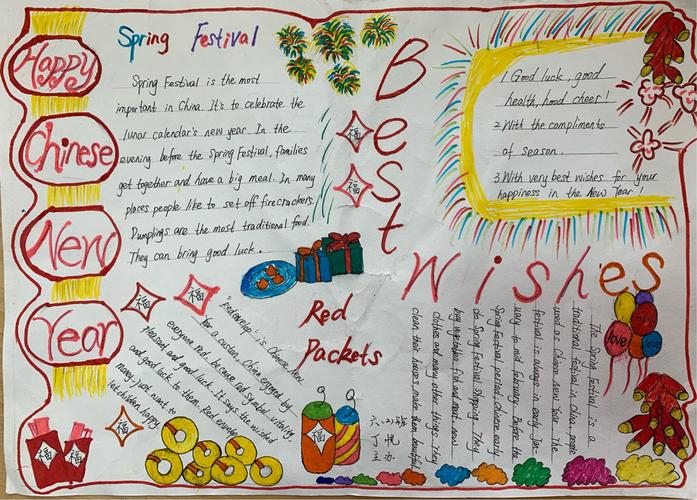 Happy
Chinese
New
Year
Spring Festival
Spring Festival is the most
important in China. It's to celebrate the
lunar calendar's new year. In the
evening before the Spring Festival, families
get together and have a big meal. In many
places people like to set off firecrackers.
Dumplings are the most traditional food.
They can bring good luck.
Best
Wishes
1 Good luck, good
health, hood cheer!
2. With the compliments
of season.
3. With very best wishes for your
happiness in the New Year!
福
福
福
福
福
福
福
福
Red
Packets
is Chinese New
for a custom, China enjoyed by
everyone Red, because red symbol vitality,
pleasant and good luck. It says the wished
and good luck to them. Red envelop
money, just want to
let children happy
The Spring Festival is a
traditional festival in China. people
used as Chinese New Year. The
festival is always in early Jan-
uary to mid February. Before the
Spring Festival period, Chinese early
do Spring Festival shopping. They
buy vegetables, fish and meat, new
clothes and many other things. They
clean their houses, make them beautiful
love
love